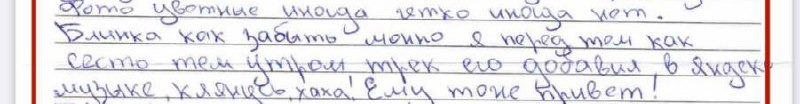 Фото цветные иногда четко иногда нет.
Блинка как забыть можно я перед том как
сесть тем утром трек его добавил в яндекс
музыке, клянусь, хаха! Ему тоже привет!